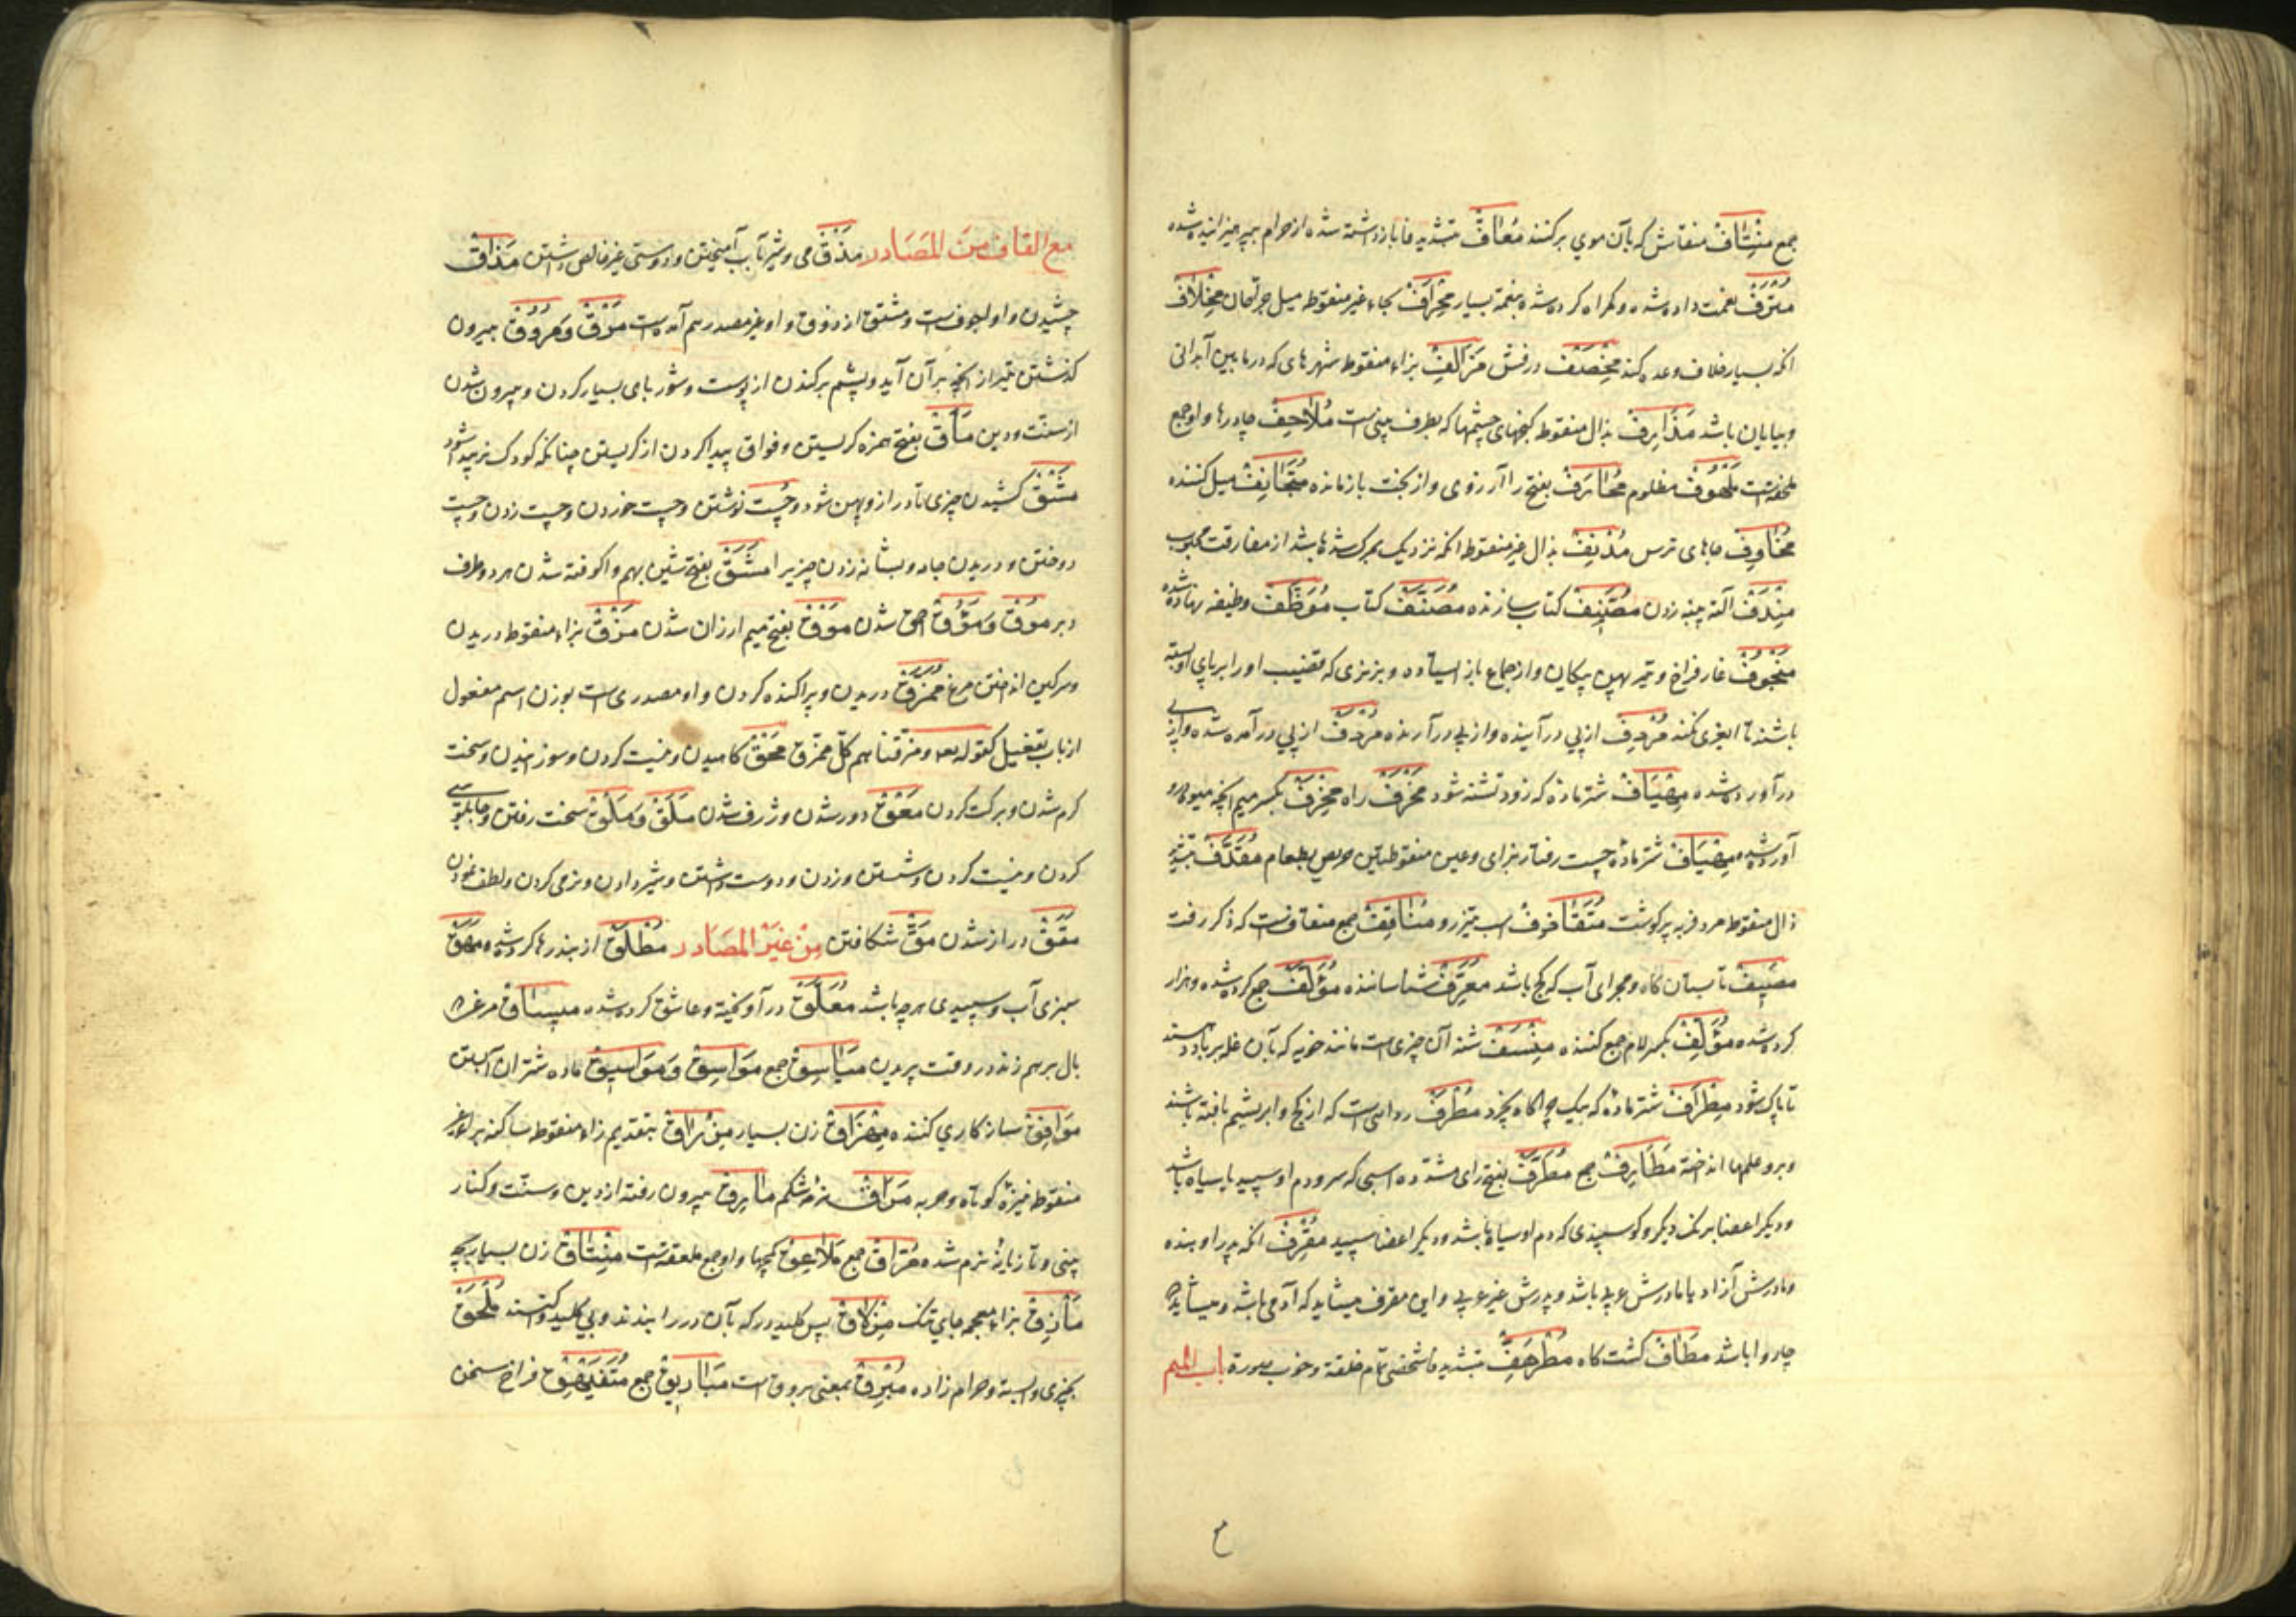 جمع مِنْتَاف منقاش که بآن موی برکنند مُعَافّ بتشدید فا بازداشته شده از حرام بپرهیزانیده شده
مُتْرَف بنعمت داده شده و کمراه کرده شده بنعمة بسیار مِحْرَاف بحاء غیر منقوطه میل جراحان مِخْلَاف
انکه بسیار خلاف وعده کند مِخْصَف درفش مَزَالِف بزاء منقوط شهرهای که در مابین آبدانی
و بیابان باشد مَذَارِف بذال منقوطه کنجهای چشمها که بطرف بینی است مَلَاحِف چادرها و او جمع
ملحفه است مَلْهُوف مظلوم مُحَارَف بفتح را آر روزی و از بخت بازمانده مُتَجَانِف میل کننده
مَخَاوِف جاهای ترس مُدْنِف بدال غیر منقوطه انکه نزدیک بمرک شده باشد از مفارقت محبوب
مِنْدَف آلة پنبه زدن مُصَنِّف کتاب سازنده مُصَنَّف کتاب مُوَظَّف وظیفه نهاده شده
مَنْجُوف غار فراخ و تیر پهن پیکان و از جماع باز ایستاده و بز نری که قضیب او را بر پای او بسته
باشند تا بغیری نکند مُرْدِف از پی در آینده و از پی در آرنده مُرْدَف از پی در آمده شده و از پی
در آورده شده مِهْیَاف شتر ماده که زود تشنه شود مَخْرَف راه مِخْرَف بکسر میم انچه میوه در او
آورده شده مِهْیَاف شتر ماده چست رفتار برای و عین منقوطتین حریص بطعام مُقَذَّف بتشدید
ذال منقوطه مرد فربه پر کوشت مُتَقَاذِف اسب تیز رو مَنَاقِف جمع منقاف است که ذکر رفت
مَصِیف تابستان کاه و مجرای آب که کج باشد مُعَرِّف شناساننده مُؤَلَّف جمع کرده شده و هزار
کرده شده مُؤَلِّف بکسر لام جمع کننده مِنْسَف شنه آن چیزی است مانند خوبه که بآن غله بر باد دهند
تا پاک شود مِطْرَاف شتر ماده که بیک چراکاه نچرد مُطْرَف ردایی است که از کج و ابریشم بافته باشند
و برو علمها انداخته مَطَارِف جمع مُطَرَّف بفتح رای مشدّده اسبی که سر و دم او سپید یا سیاه باشد
و دیکر اعضا برنک دیکر و کوسپندی که دم او سیاه باشد و دیکر اعضا سپید مُقْرِف انکه پدر او بنده
و مادرش آزاد یا مادرش عربی باشد و پدرش غیر عربی و این مقرف میشاید که آدمی باشد و میشاید که
چاروا باشد مَطَاف کشت کاه مُطَرْهَفّ بتشدید فا شخصی تمام خلقة و خوب صورة باب المیم
مع القاف من المصادر مَذْق می و شیر بآب آمیختن و دوستی غیر خالص داشتن مَذَاق
چشیدن و او اجوف است و مشتق از ذوق و او غیر مصدر هم آمده است مَرْق وَ مُرُوق بیرون
کذشتن تیر از انچه بر آن آید و پشم برکندن از پوست و شوربای بسیار کردن و بیرون شدن
از سنت و دین مَأَق بفتح همزه کریستن و فواق پیدا کردن از کریستن چنانکه کودک نر پیدا شود
مَشْق کشیدن چیزی تا دراز و پهن شود و چست نوشتن و چست خوردن و چست زدن و چست
دوختن و دریدن جامه و بشانه زدن چیزیرا مَشَق بفتح شین بهم وا کوفته شدن هر دو طرف
دبر مُوق وَ مُؤُوق احمق شدن مَوْق بفتح میم ارزان شدن مَزْق بزاء منقوطه دریدن
و سرکین انداختن مرغ مُمَزَّق دریدن و پراکنده کردن و او مصدری است بوزن اسم مفعول
از باب تفعیل کقوله تعه و مزّقناهم کلّ ممزّق مَحْق کاهیدن و نیست کردن و سوزانیدن و سخت
کرم شدن و برکت کردن مَعْق دور شدن و ژرف شدن مَلَق وَ مَلْق سخت رفتن و چابلوسی
کردن و نیست کردن و شستن و زدن و دوست داشتن و شیر دادن و نرمی کردن و لطف نمودن
مَقَق دراز شدن مَقّ شکافتن من غیر المصادر مُطْلَق از بند رها کرده شده مَهَق
سبزی آب و سپیدی هر چه باشد مُعَلَّق در آویخته و عاشق کرده شده مِیسَاق مرغ که
بال بر هم زند در وقت پریدن مَیَاسِیق جمع مَوَاسِق وَ مَوَاسِیق ماده شتران آبستن
مُوَافِق سازکاری کننده مِهْزَاق زن بسیار مِزْرَاق بتقدیم زاء منقوطه ساکنه بر را غیر
منقوطه نیزهٔ کوتاه و حربه مَرَاقّ نرمه شکم مَارِق بیرون رفته از دین و سنّت و کنار
بینی و تازیانهٔ نرم شده مُرَاق جمع مَلَاعِق کمچها و او جمع ملعقه است مِنْتَاق زن بسیار بچه
مَأْزِق بزاء معجمه جای تنک مِزْلَاق پس کلید در که بآن در را ببندند و بی کلید توانستند مُلْحَق
بچیزی وابسته و حرام زاده مُبْرِق بمعنی بروق است مَبَارِیق جمع مُتَفَیْهِق فراخ سخن